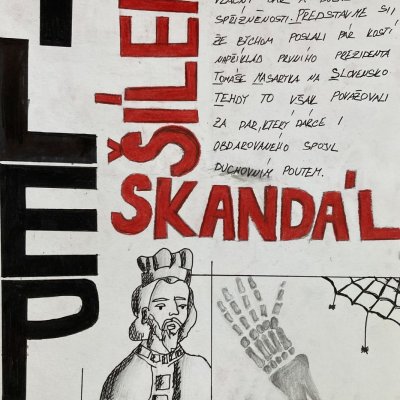 SPŘÍZNĚNOSTI. PŘEDSTAVME SI,
ŽE BYCHOM POSLALI PÁR KOSTÍ
NAPŘÍKLAD PRVNÍHO PREZIDENTA
TOMÁŠE MASARYKA NA SLOVENSKO
TEHDY TO VŠAK POVAŽOVALI
ZA DAR, KTERÝ DÁRCE I
OBDAROVANÉHO SPOJIL
DUCHOVNÍM POUTEM.
ŠÍLE
SKANDÁL
LEP